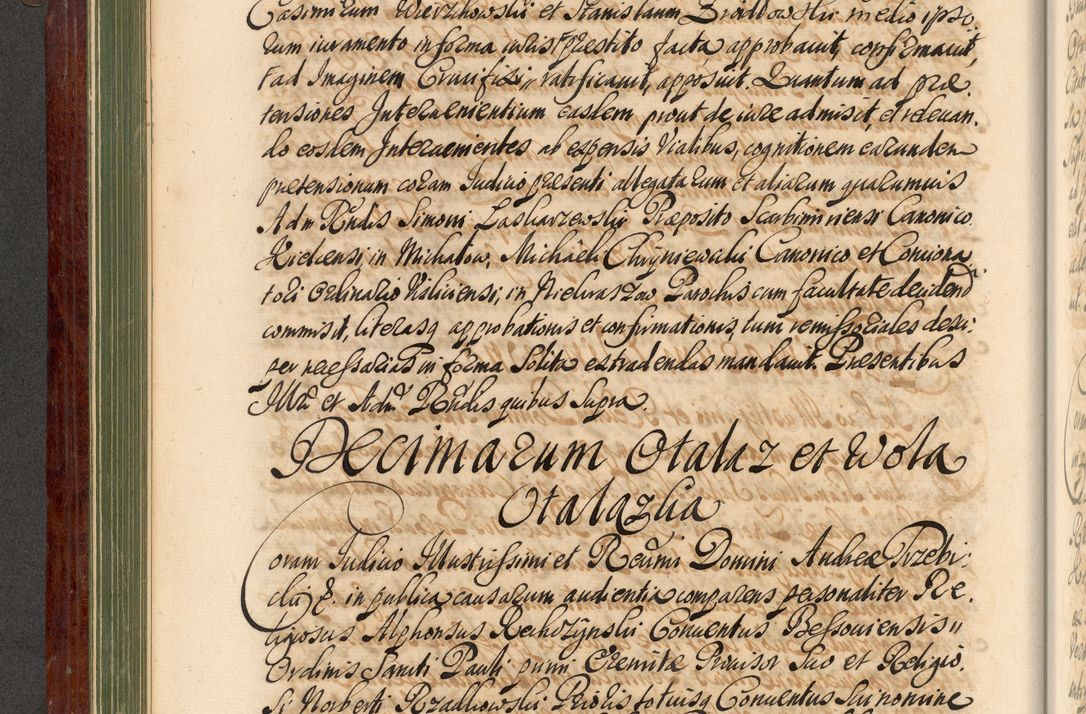 Casimirum Wierzchowski et Stanislaum Bwallowski medio ipso-
rum iuramento in forma iuris præstito facta approbauit, confirmauit,
ad Imaginem Crucifixi, ratificauit, apposuit. Quantum ad præ-
tensiones Interuenientium easdem, prout de iure admisit, et releuan-
do eosdem Interuenientes ab expensis Vialibus, cognitionem earundem
prætensionum coram Judicio præsenti allegatarum et aliarum quarumuis
Adm Rndis Simoni Laskarzewski Præposito Scarbimiriensi Canonico
Kielcensi, in Michałow, Michaeli Chryniewski Canonico et Conciona
tori Ordinario Kiliciensi, in Parochus cum facultate decidend
commisit, literasq approbationis et confirmationis, tum remissoriales desu-
per necessarias in forma solita extradendas mandauit. Præsentibus
Illri et Adm Rndis quibus supra.
Decimarum Otalaz et Wola
Otalazka
Coram Judicio Illustrissimi et Reumi Domini Andreæ Trzebi-
cki &. in publica causarum audientia comparens personaliter Re-
ligiosus Alphonsus Conuentus Bessouiensis
Ordinis Sancti Pauli primi Eremitæ Prouisor suo et Religio-
si Norberti Rzadkowski Prioris totiusq Conuentus sui nomine